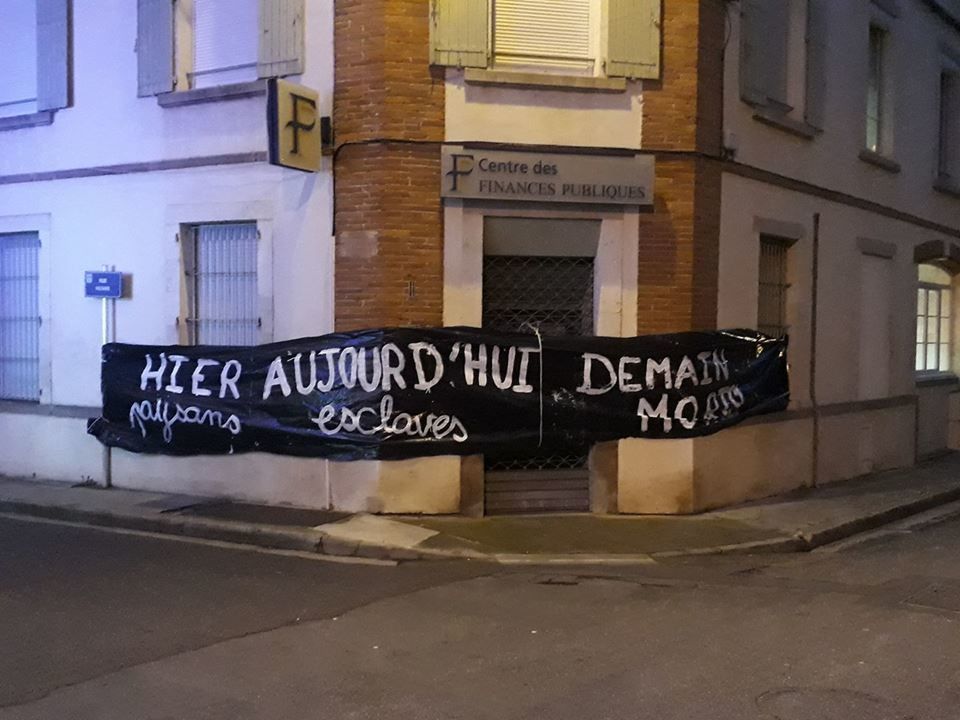 F
F Centre des
FINANCES PUBLIQUES
HIER AUJOURD'HUI DEMAIN
paysans esclaves MORTS